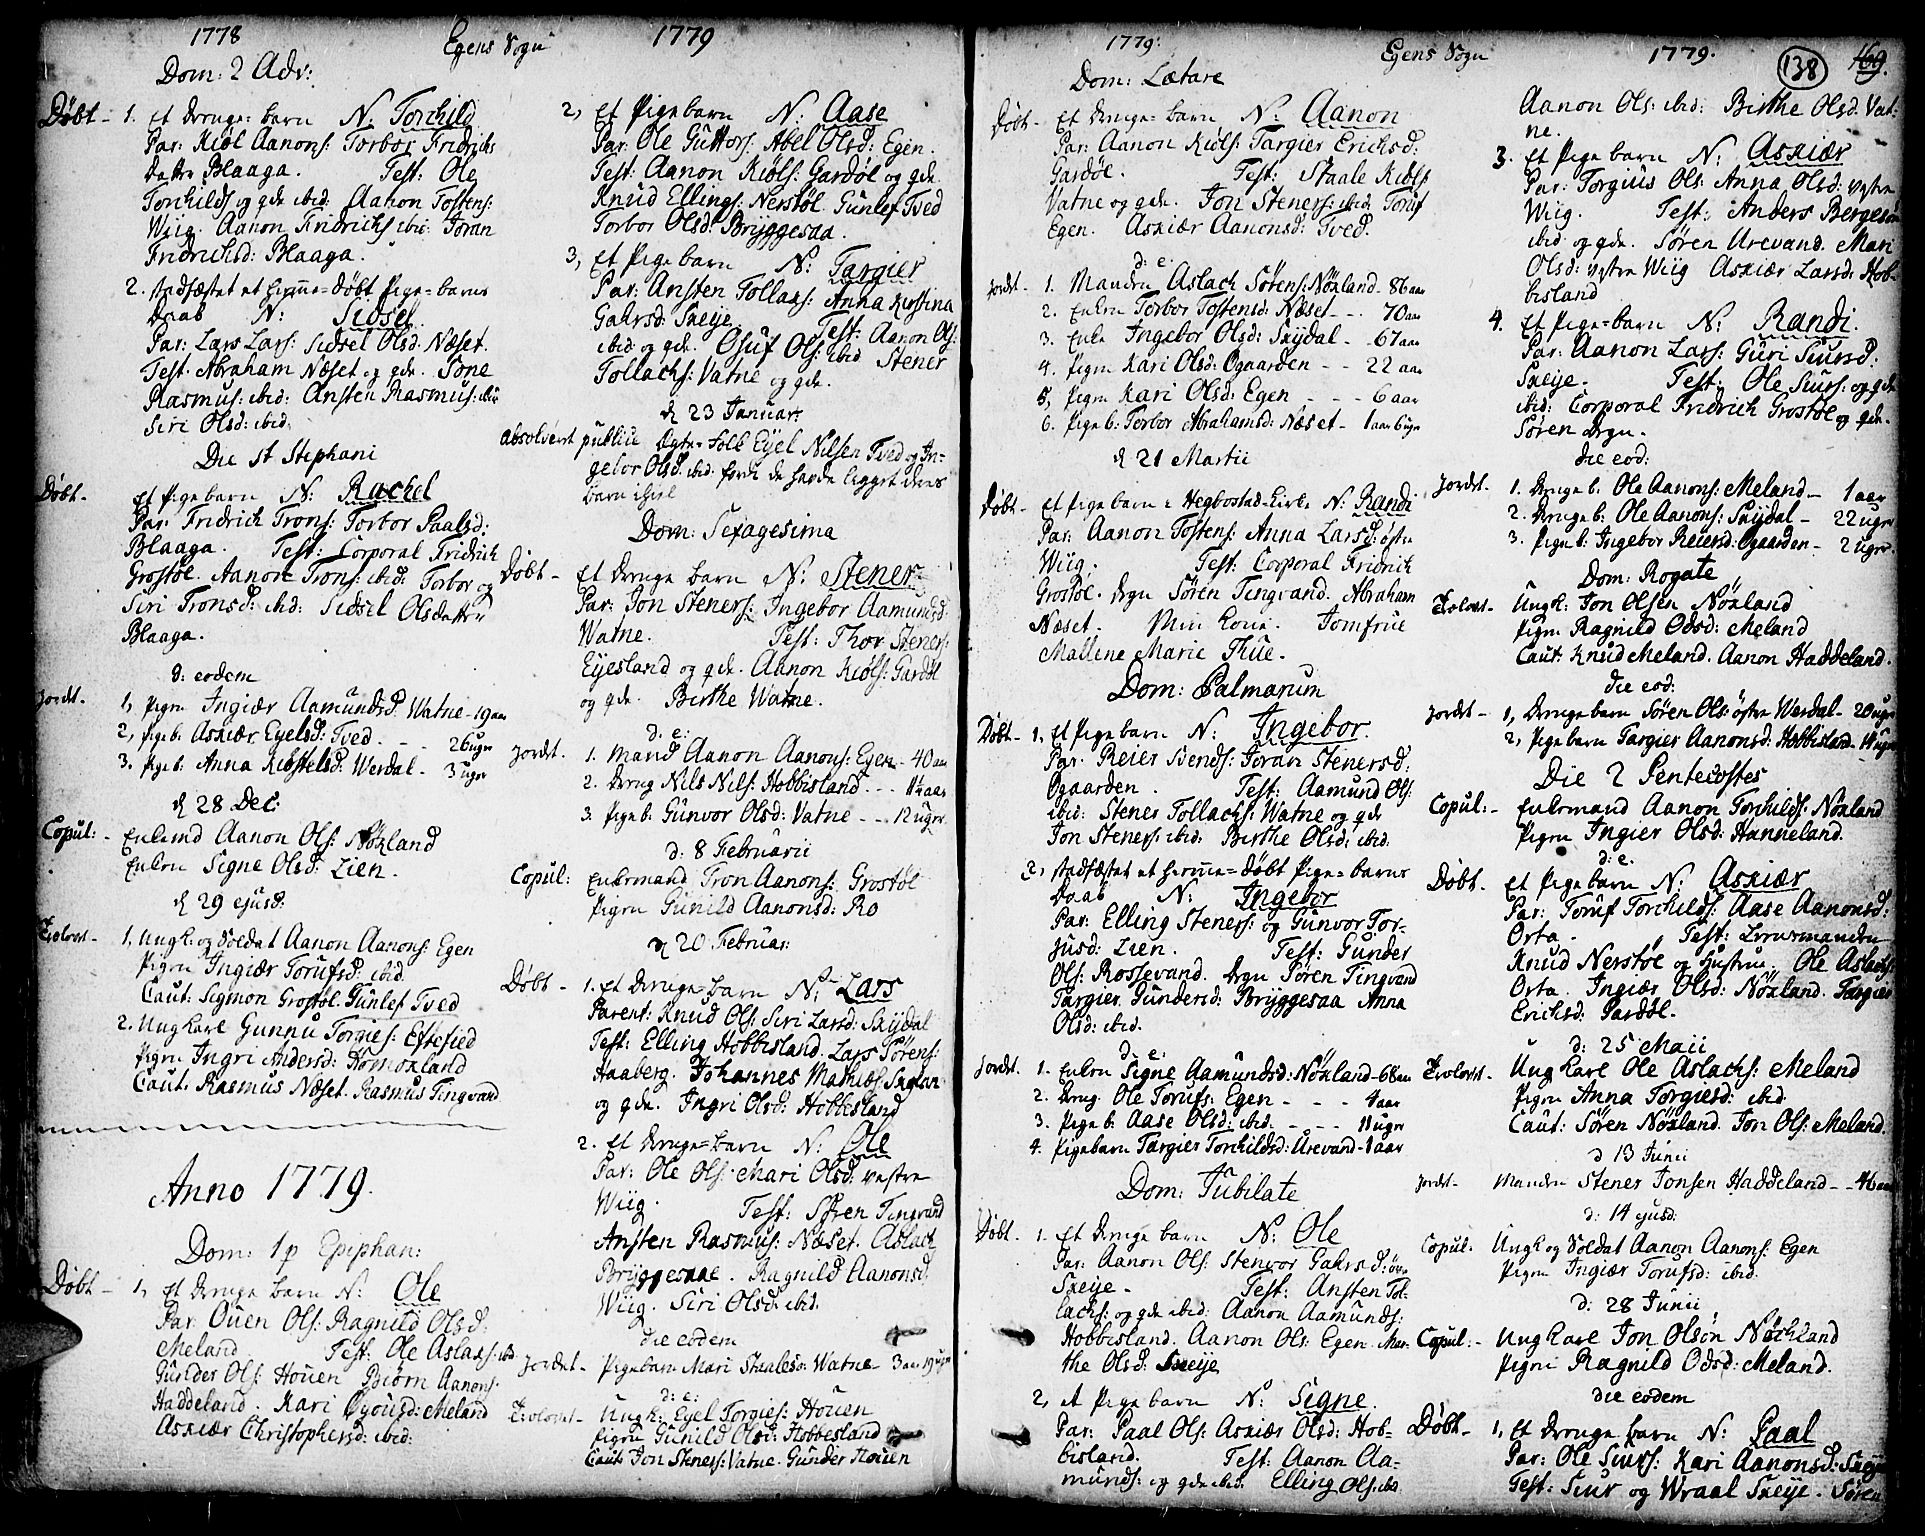 1778 Egens Sogn 1779
Dom: 2 Adv:
Døbt - 1. Et Drenge-barn N: Torchild
Par: Kiøl Aanons: Torbor Fridrichs
datter Blaaga. Test: Ole
Torchilds og qde ibid: Aanon Tostens:
Wiig. Aanon Fridrichs ibid: Joran
Fridrichsd: Blaaga.
2. stadfæstet et hieme-døbt Pige-barns
Daab N: Sidsel
Par: Lars Lars: Sidsel Olsd: Næset.
Test: Abraham Næset og qde. Tone
Rasmus: ibid: Ansten Rasmus: ibid
Siri Olsd: ibid.
Die St Stephani
Døbt - Et Pige barn N: Rachel
Par: Fridrich Trons: Torbor Paalsd:
Blaaga. Test: Corporal Fridrich
Grostøl. Aanon Trons: ibid: Torbor og
Siri Tronsd: ibid: Sidsel Olsdatter
Blaaga.
d: eodem
Jordt. 1, Pigen Ingiær Aamundsd: Watne - 19 aar
2, Pige b. Asxiær Eyelsd: Tved - 26 uger
3. Pige b. Anna Kiøstelsd: Werdal - 3 uger
d 28 Dec:
Copul: - Enkemd Aanon Ols: Nøxland
Enken Signe Olsd: Lien.
d 29 ejusd:
Trolovet - 1. Ungk: og Soldat Aanon Aanons: Egen
Pigen Ingiær Torufsd: ibid.
Caut: Sigmon Grostøl. Gunlef Tved
2. Ung karl Gunnu Torgies: Eftestød
Pigen Ingri Andersd: Homoxland
Caut: Rasmus Næset. Rasmus Tingvand
Anno 1779.
Dom: 1 p Epiphan:
Døbt - 1, Et Drenge barn N: Ole
Par: Ouen Ols: Ragnild Olsd:
Meland Test: Ole Aslaks: ibd
Gunder Ols: Houen Biørn Aanons:
Haddeland. Kari Øyousd: Meland
Asxiær Christophersd: ibid:
2, Et Pige barn N: Aase
Par: Ole Guttors: Abel Olsd: Egen.
Test: Aanon Kiøls: Gardøl og qde.
Knud Ellings: Nerstøl. Gunlef Tved
Torbor Olsd: Bryggesaa.
3, Et Pige barn N: Targier
Par: Ansten Tollaks: Anna Kirstina
Gahrsd: Sxeije. Test: Aanon Ols:
ibid: og qde. Osuf Ols: ibid Stener
Tollachs: Vatne og qde.
d 23 Januar:
Absolveret publice Egte-folk Eyel Nilsen Tved og In-
gebor Olsd: ibid: fordi de hafde ligget deres
barn ihiel
Dom: Sexagesima
Døbt - Et Drenge barn N: Stener
Par: Jon Steners: Ingebor Aamundsd:
Watne. Test: Thor Steners:
Eyesland og qde. Aanon Kiøls: Gardøl
og qde. Birthe Watne.
d: e:
Jordt. 1. Mand Aanon Aanons: Egen - 40 aar
2. Dreng Nils Nils: Hobbisland - - - 11 aar
3. Pige b. Gunvor Olsd: Vatne - - - 12 uger
d: 8 Februarii
Copul: Enkemand Tron Aanons: Grostøl
Pigen Gunild Aanonsd: Ro
d 20 Februar:
Døbt - 1. Et Drenge-barn N: Lars
Parent: Knud Ols: Siri Larsd: Sxydal
Test: Elling Hobbisland. Lars Sørens:
Haaberg. Johannes Mathias:
og qde. Ingri Olsd: Hobbesland
2. Et Drenge-barn N: Ole
Par: Ole Ols: Mari Olsd: vestre
Wiig. Test: Søren Tingvand
Ansten Rasmus: Næset. Aslach
Bryggesaae. Ragnild Aanonsd:
Wiig. Siri Olsd: ibid.
die eodem
Jordet - Pigebarn Mari Staalesd: Watne - 3 aar 19 uger
d: e:
Trolovet - Ungk: Eyel Torgies: Houen
Pigen Gunild Olsd: Hobbesland
Caut: Jon Steners: Vatne. Gunder Houen
1779: Egens Sogn 1779. 138 169.
Dom: Lætare
Døbt - Et Drenge-barn N: Aanon
Par: Aanon Kiøls: Targier Ericksd:
Gardøl. Test: Staale Kiøls
Vatne og qde. Jon Steners: ibid: Toruf
Egen. Asxiær Aanonsd: Tved.
d: e:
Jordt. 1. Manden Aslach Sørens: Nøxland - 86 aar
2. Enken Torbor Tostensd: Næset - - - 70 aar
3. Enke Ingebor Olsd: Sxydal - - 67 aar
4. Pigen Kari Olsd: Ogaarden - - 22 aar
5, Pigen Kari Olsd: Egen - - - 6 aar
6. Pige b: Torbor Abrahamsd: Næset - 1 aar 6 uge
d 21 Martii
Døbt - Et Pige barn i Hegbostad-kirke N: Randi
Par: Aanon Tostens: Anna Larsd: østre
Wiig. Test: Corporal Fridrich
Grostøl. Søren Tingvand. Abraham
Næset. Min kone. Jomfrue
Mallene Marie Thue.
Dom: Palmarum
Døbt - 1. Et Pige barn N: Ingebor
Par: Reier Svends: Joran Stenersd:
Ogaarden. Test: Aamund Ols:
ibid: Stener Tollachs: Watne og qde
Jon Steners: ibid: Birthe Olsd: ibid.
2, stadfæstet et hieme-døbt Pige-barns
Daab N: Ingebor
Par: Elling Steners: og Gunvor Tor-
jusd: Lien. Test: Gunder
Ols: Rossevand. Søren Tingvand
Targier Gundersd: Bryggesaa Anna
Olsd: ibid.
d: e:
Jordt. 1. Enken Signe Aamundsd: Nøxland - 68 aar
2. Dreng. Ole Torufs: Egen - - - 4 aar
3. Pige b. Aase Olsd: ibid. - - - 11 uger
4. Pigebarn Targier Torchildsd: Urevand - 1 aar
Dom: Jubilate
Døbt. 1. Et Drenge barn N: Ole
Par: Aanon Ols: Stenvor Gahrsd: øvre
Sxeije - Test: Ansten Tol-
lachs: og qde ibid: Aanon Aamunds:
Hobbisland. Aanon Ols: Egen. Mar-
the Olsd: Sxeije
2, et Pige barn N: Signe
Par: Paal Ols: Asxiær Olsd: Hob-
bisland. Test: Aanon Aa-
munds: og qde ibid: Elling Ols: ibd
Aanon Ols: ibid: Birthe Olsd: Vat-
ne.
3. Et Pige barn N: Asxiær
Par: Torgius Ols: Anna Olsd: vestre
Wiig. Test: Anders Bergesen
ibid: og qde. Søren Urevand. Mari
Olsd: vestre Wiig Asxiær Larsd: Hob-
bisland
4. Et Pige-barn N: Randi.
Par: Aanon Lars: Guri Siursd:
Sxeije. Test: Ole Siurs: og qde
ibid: Corporal Fridrich Grostøl og qde.
Søren Degn.
die eod:
Jordt. 1. Drenge b. Ole Aanons: Meland - 1 aar
2. Drenge b: Ole Aanons: Sxydal - 22 uger
3. Pige b: Ingebor Reiersd: Ogaarden - 2 uger
Dom: Rogate
Trolovet - Ungk: Jon Olsen Nøxland
Pigen Ragnild Odsd: Meland
Caut: Knud Meland. Aanon Haddeland.
die eod:
Jordt - 1, Drenge barn Søren Ols: østre Werdal - 20 uger
2, Pige barn Targier Aanonsd: Hobbisland - 11 uger
Die 2 Pentecostes
Copul: - Enkemand Aanon Torchilds: Nøxland
Pigen Ingier Olsd: Hanneland.
d: e.
Døbt - Et Pige barn N: Asxiær
Par: Toruf Torchilds: Aase Aanonsd:
Orta. Test: Lensmanden
Knud Nerstøl og Hustrue. Ole Aslachs:
Orta. Ingiær Olsd: Nøxland. Targier
Ericksd: Gardøl.
d: 25 Maii
Trolovet - Ung karl Ole Aslachs: Meland
Pigen Anna Torgiesd: ibid.
Caut: Søren Nøxland. Jon Ols: Meland.
d 13 Junii
Jordt - Manden Stener Jonsen Haddeland - - 46 aar
d: 14 ejusd:
Copul: Ungk og Soldat Aanon Aanons: Egen
Pigen Ingiær Torufsd: ibid.
d: 28 Junii
Copul: - Ung karl Jon Olsøn Nøchland
Pigen Ragnild Odsd: Meland.
die eodem
Døbt - 1, Et Drenge barn N: Paal
Par: Ole Siurs: Kari Aanonsd: Sxeije
Test: Siur og Wraal Sxeije. Søren